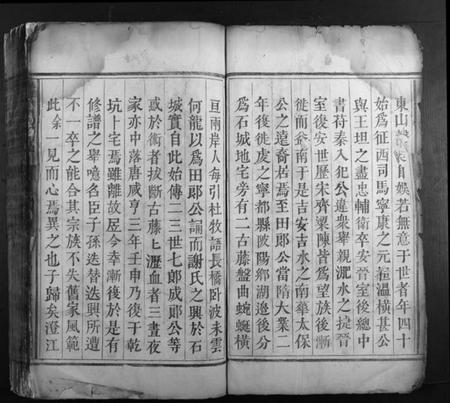 東山自娛若無意于世者年四十
始爲征西司馬寧康之元桓溫橫甚公
與王坦之盡忠輔衛卒安晉室後總中
書苻秦入犯公違衆舉親淝水之捷晉
室復安世歷宋齊梁陳皆爲望族後漸
徙而於是吉安吉水之南華太保
公之遠裔焉至田郞公當隋大業二
年復徙虔之寧都縣陂陽鄉湖邊後分
爲石城地宅旁有二古藤盤曲蜿蜒橫
亘兩岸人每引杜牧語長橋卧波未雲
何龍以爲田郞公讖而謝氏之興於石
城實自此始傳二三世七郞成郞公等
或於術者拔斷古藤七瀝血者三晝夜
家亦中落唐咸亨三年壬申乃復于乾
坑卜宅焉雖離故居今幸漸後於是有
修譜之舉噫名臣子孫迭替迭興所遭
不一卒之能合其宗族不失舊家風範
此余一見而心焉異之也子歸矣澄江